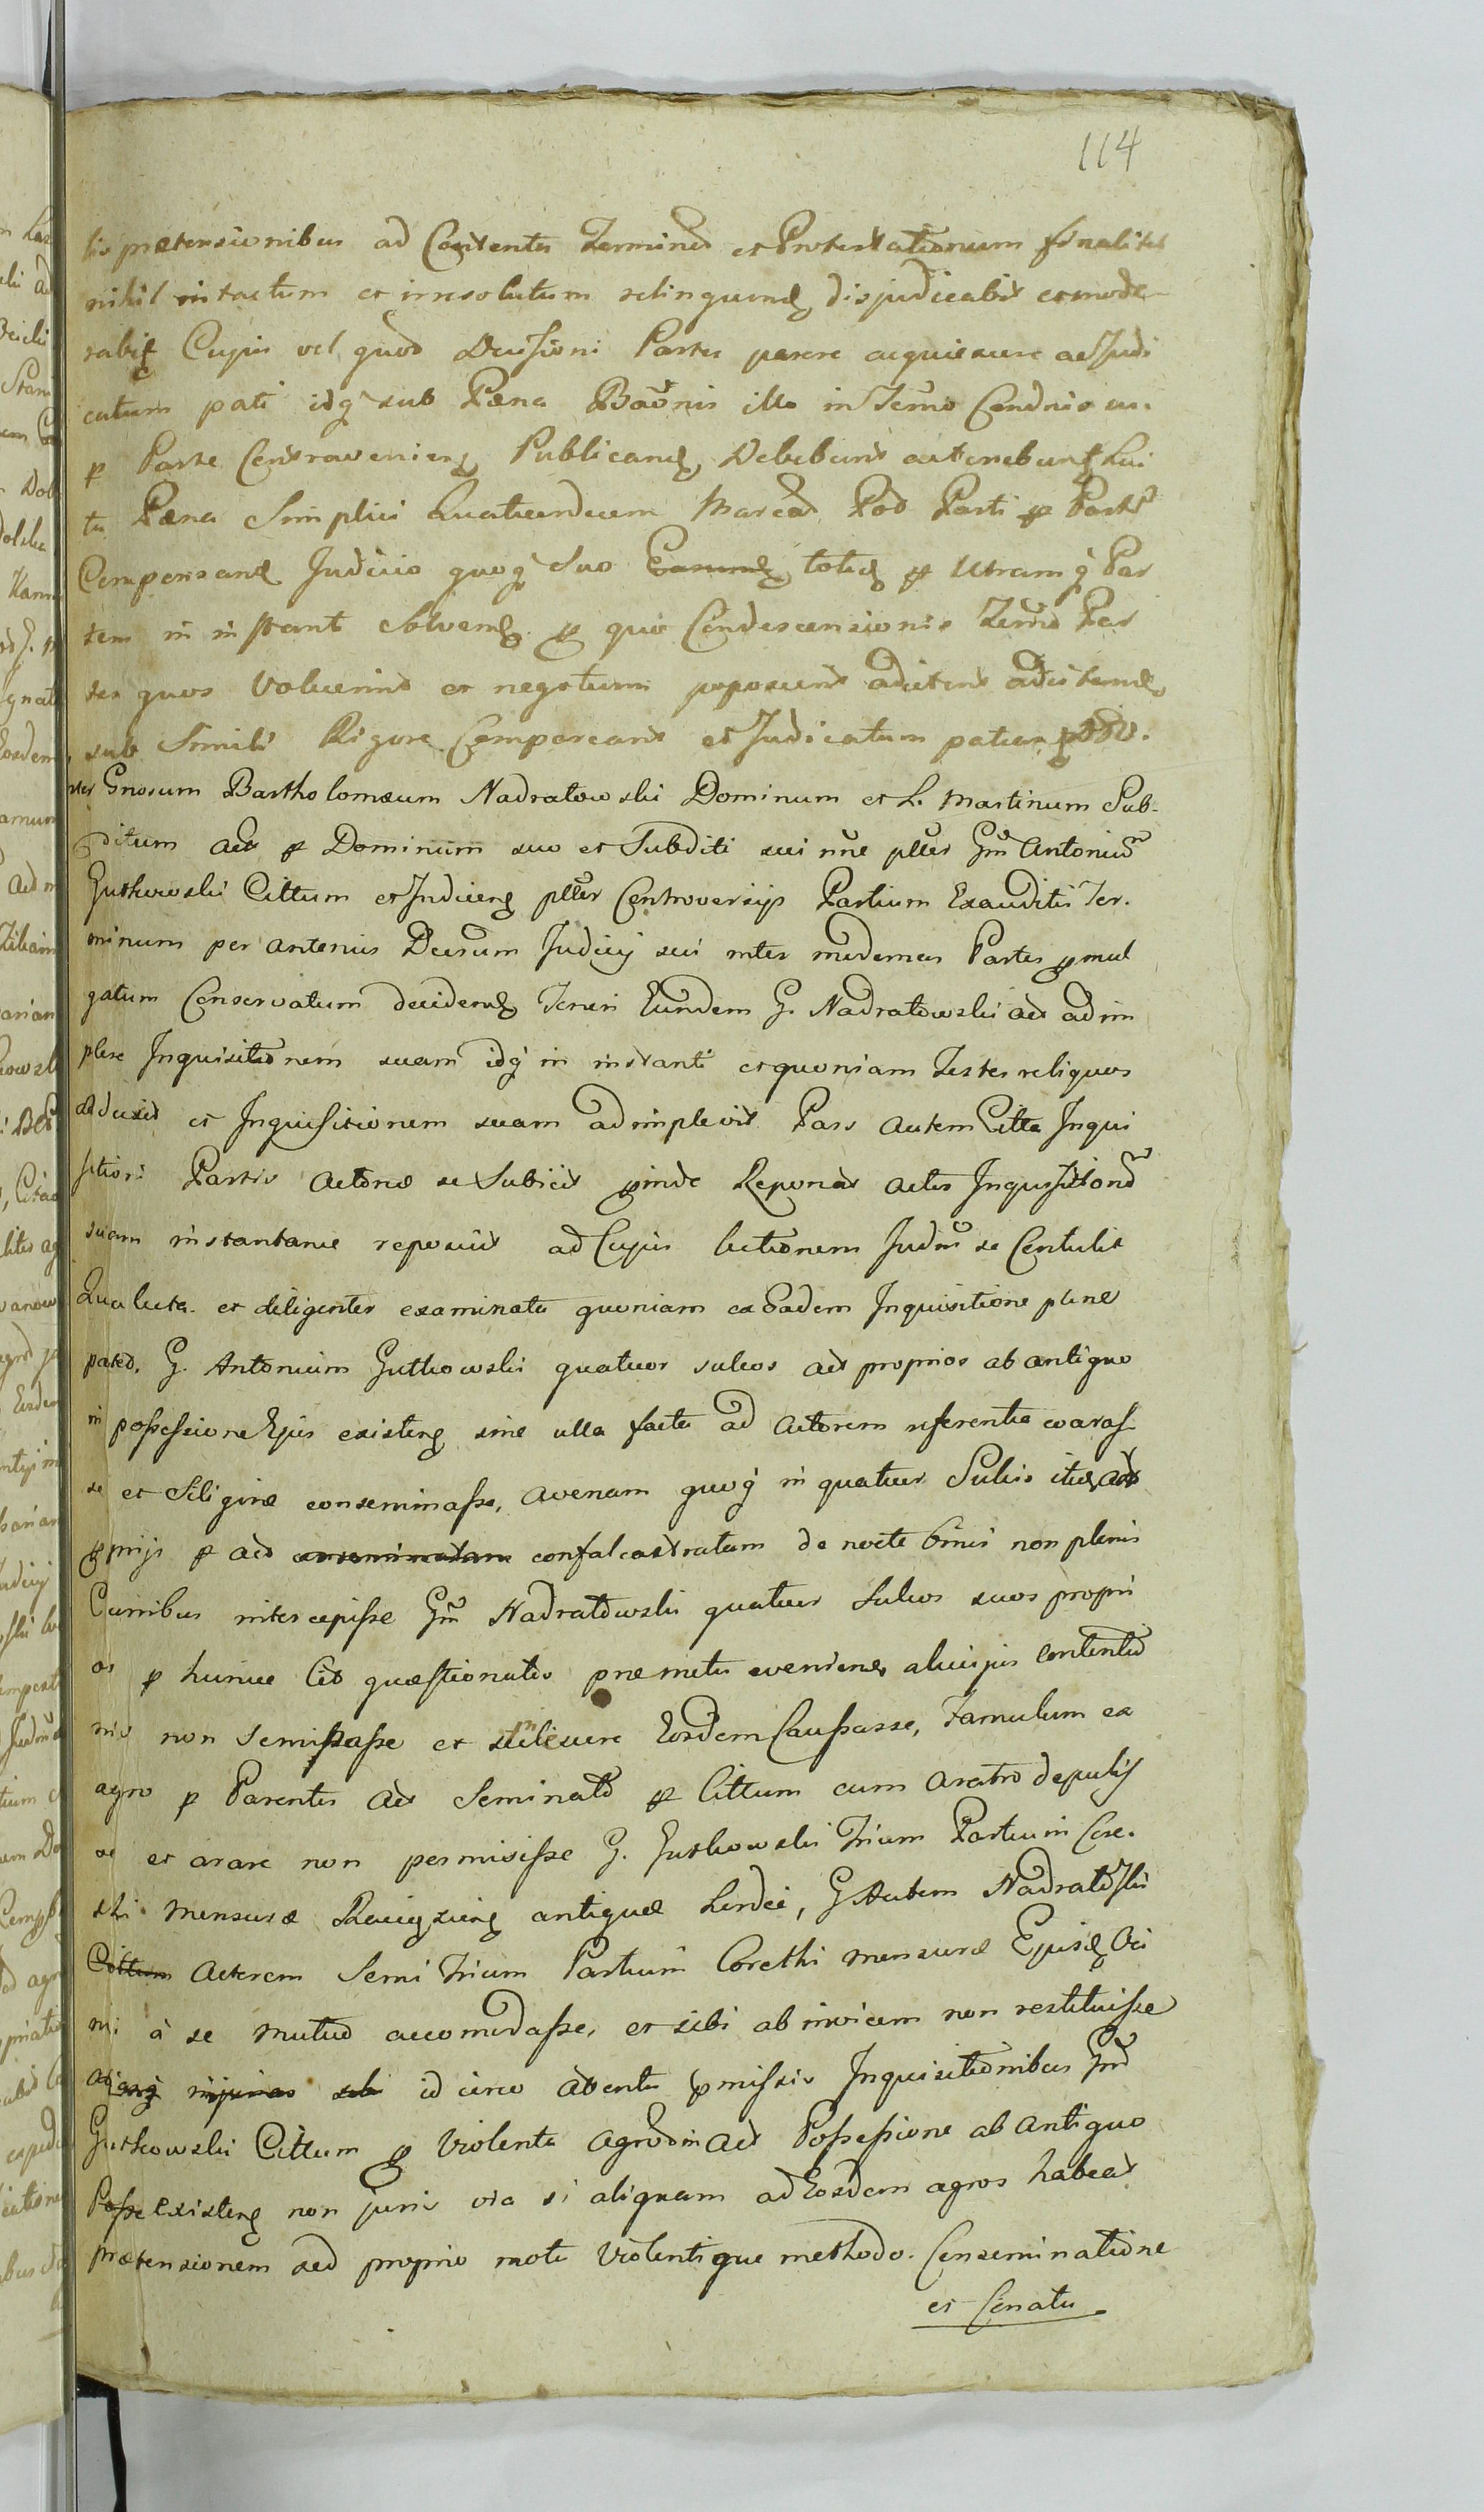 114
lis prætensionibus ad Contenta Terminor et Protestationum finaliter
nihil intactum et irresolutum relinquend disjudicabit et mode-
rabit Cujus vel quod Decisioni Partes parere acquiescere ac Judi
catum pati idq sub Pæna Bañnis illo in Termo Condnis su.
p Parte Contravenien Publicand, Debebunt ac tenebunt Lui
ta Pæna Simplici Quatuordecem Marcar Pod Parti p Parte
Compensand Judicio quoq Suo totid p Utramq Par
tem in instant Solvend p quo Condescensionis Termo Par
tes quos Voluerint et negotium poposcerit adcitent adcitand
sub Simili Rigore Compareant et Judicatum patiant
nter Gnosum Bartholomæum Nadratowski Dominum et L. Martinum Sub-
ditum Act p Dominum suo et Subditi sui nñe plles Gm Antonium
Gutkowski Cittum et Judicen plles Controversijs Partium Exauditis Ter-
minum per antenus Decsum Judicij sui inter modernas Partes pmul
gatum Conservatum decidend Teneri Eundem G. Nadratowski act adim
plere Inquisitionem suam idq in instanti et quoniam Testes reliquos
adduxit et Inquisitionem suam adimplevit Pars autem Citta Inqui
sitioni Partis Actoræ se Subiicit pinde Reponat acta Inquisitiond
suam instantanee reposuit ad Cujus lectionem Judm se Contulit
Qua lecta et diligenter examinata quoniam ex Eadem Inquisitione plene
pated. G. Antonium Gutkowski quatuor sulcos act proprios ab antiquo
in possessione Ejus existen sine ulla facta ad Actorem referentia exaras-
se et Siliginæ conseminasse, avenam quoq in quatuor Sulcis itid act
pprijs p act conseminatam confalcastratam de nocte binis non plenis
Curribus intercepisse Gm Nadratowski quatuor Sulcos suos propri
os p hunce Cit quæstionatos præ metu evenienes alicujus contentio
nis non Semissasse et Eosdem Caussasse, Famulum ex
agro p Parentes Act Seminato p Cittum cum aratro depulis
se et arare non permisisse G. Gutkowski Trium Partium Core-
thi mensuræ antiquæ hordei, G Autem Nadratowski
Cittum Actorem Semi Trium Partium Corethi mensuræ Ejusd
ni à se mutuo accomodasse, et sibi ab invicem non restituisse
id circo attentis pmissis Inquisitionibus Gm
Gutkowski Cittum p Violenta agror in act Possessione ab antiquo
Posse Existen non juris via si aliquam ad Eosdem agros habeat
prætensionem sed proprio motu Violentique methodo. Conseminatione
et Conatu